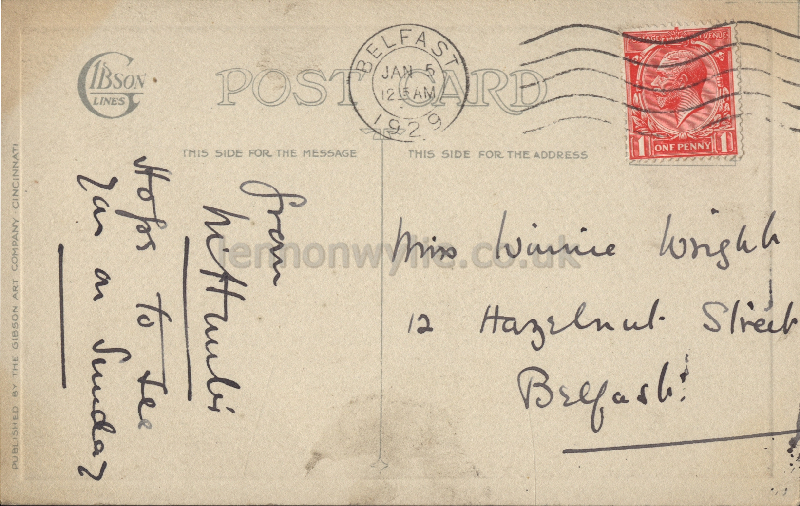 GIBSON
LINES
POST CARD
BELFAST
JAN 5
12 15 AM
1929
POSTAGE REVENUE
1 ONE PENNY 1
THIS SIDE FOR THE MESSAGE
THIS SIDE FOR THE ADDRESS
PUBLISHED BY THE GIBSON ART COMPANY CINCINNATI
from
Hope to see
You on Sunday
Miss Winnie Wright
12 Hazelnut Street
Belfast
lennonwylie.co.uk